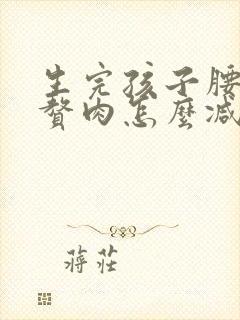 生完孩子腰
贅肉怎麼減
蔣莊